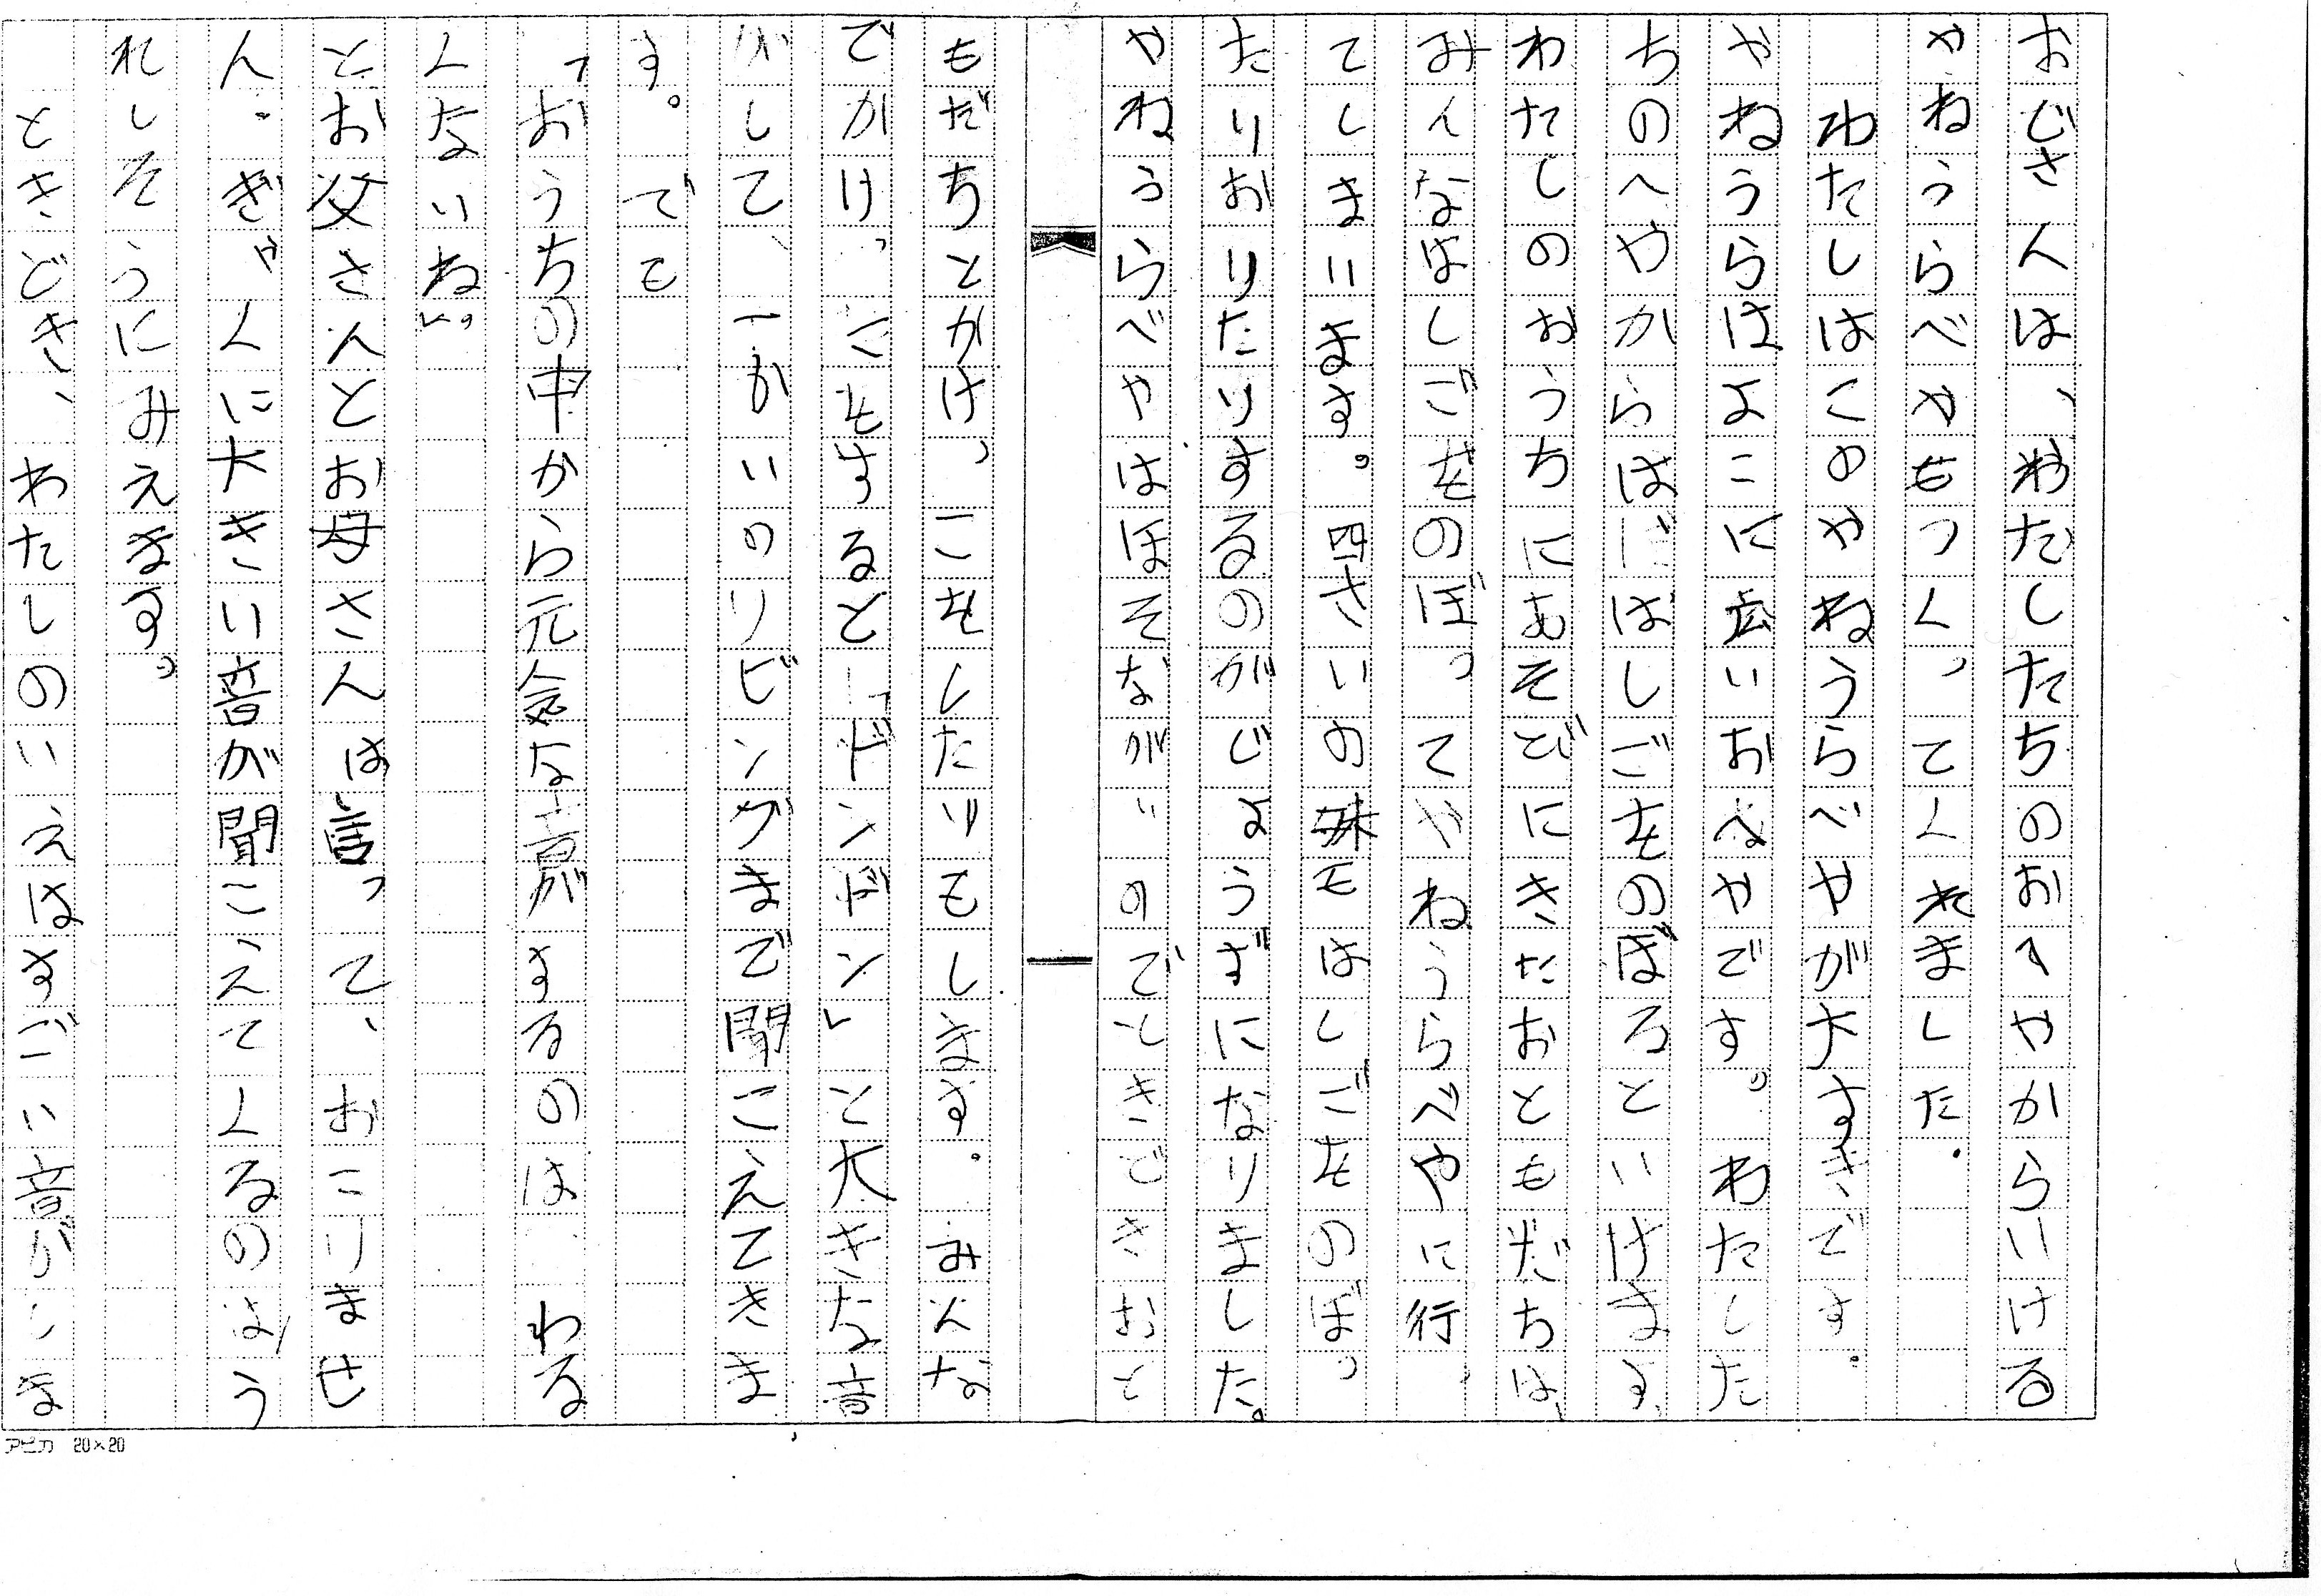 おじさんは、わたしたちのおへやからいける
やねうらべやもつくってくれました。
わたしはこのやねうらべやが大すきです。
やねうらはよこに広いおへやです。わたした
ちのへやからはじばしごをのぼるといけます
わたしのおうちにむそびにきたおともだちは、
みんなはしごをのぼってやねうらべやに行っ
てしまいます。四さいの妹もはしごをのぼっ
たりおりたりするのがじょうずになりました。
やねうらべやはほそながいのでときどきおと
もだちとかけっこをしたりもします。みんな
でかけっこをすると「ドンドン」と大きな音
がして、一かいのリビングまで聞こえてきま
す。でも
「おうちの中から元気な音がするのは わる
くないね。」
とお父さんとお母さんは言って、おこりませ
ん。ぎゃくに大きい音が聞こえてくるのはう
れしそうにみえます。
ときどき、わたしのいえはすごい音がしま
アピカ 20×20